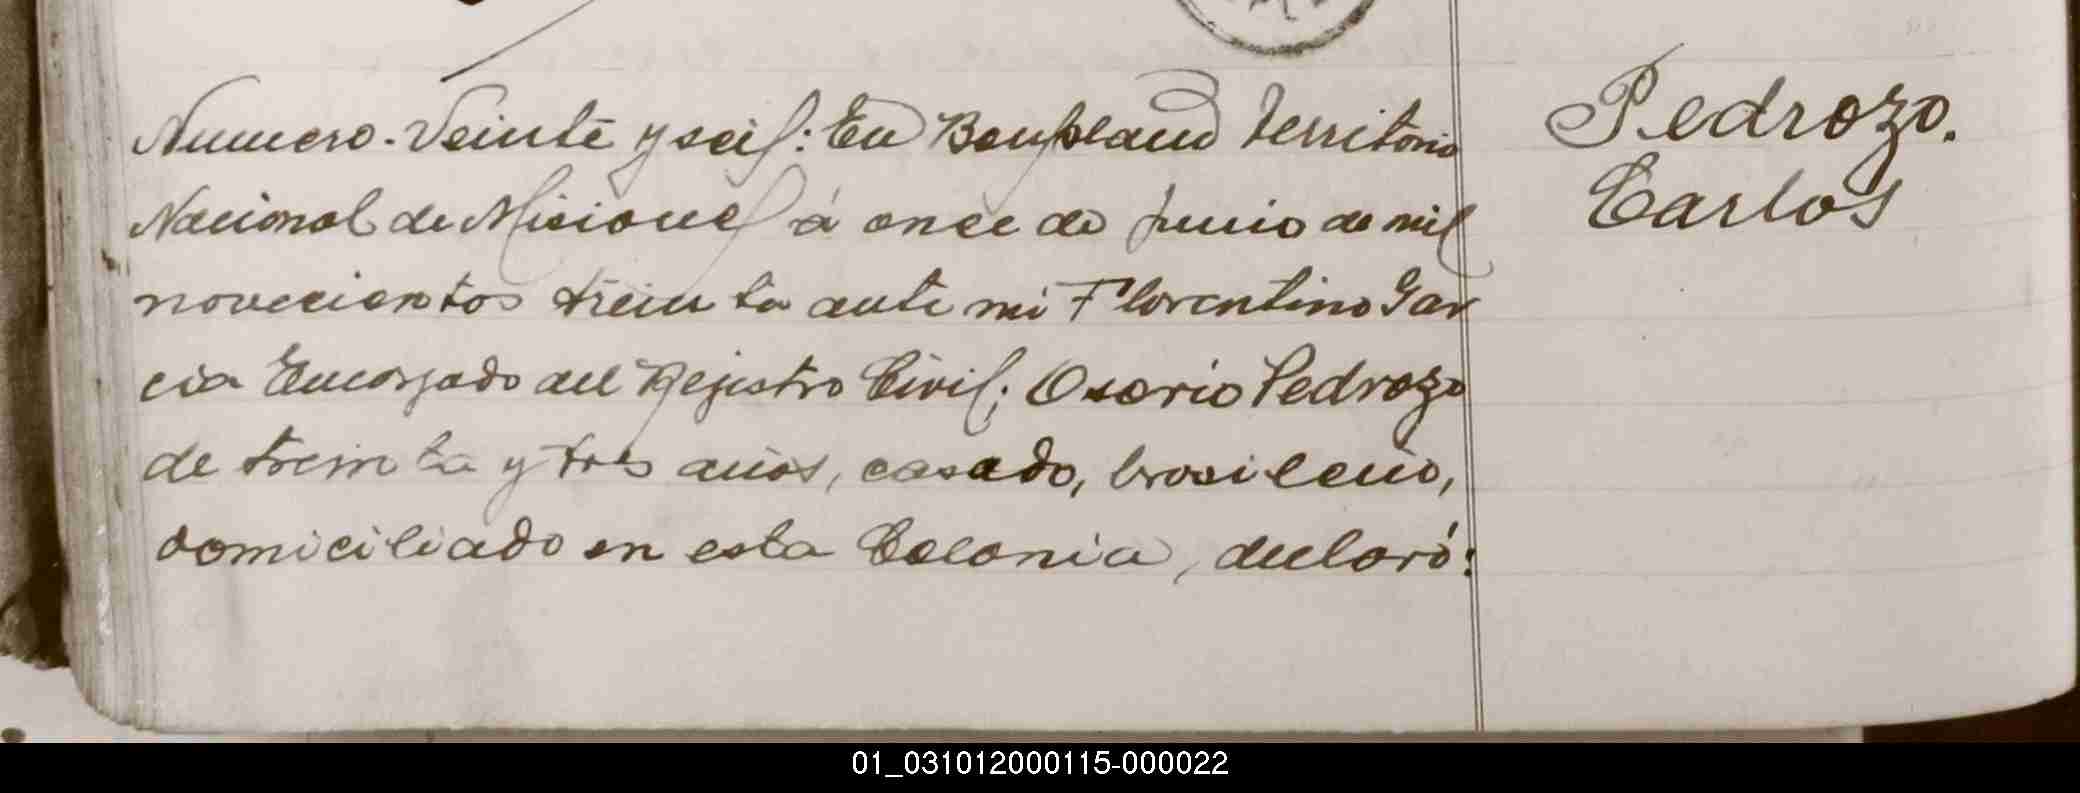 Numero. Veinte y seis: En Bonpland Territorio
Nacional de Misiones á once de junio de mil
novecientos treinta ante mi Florentino Gar
cia Encargado del Rejistro Civil; Osorio Pedrozo
de treinta y tres años, casado, brasileño,
domiciliado en esta Colonia, declaró:
Pedrozo.
Carlos
01_031012000115-000022